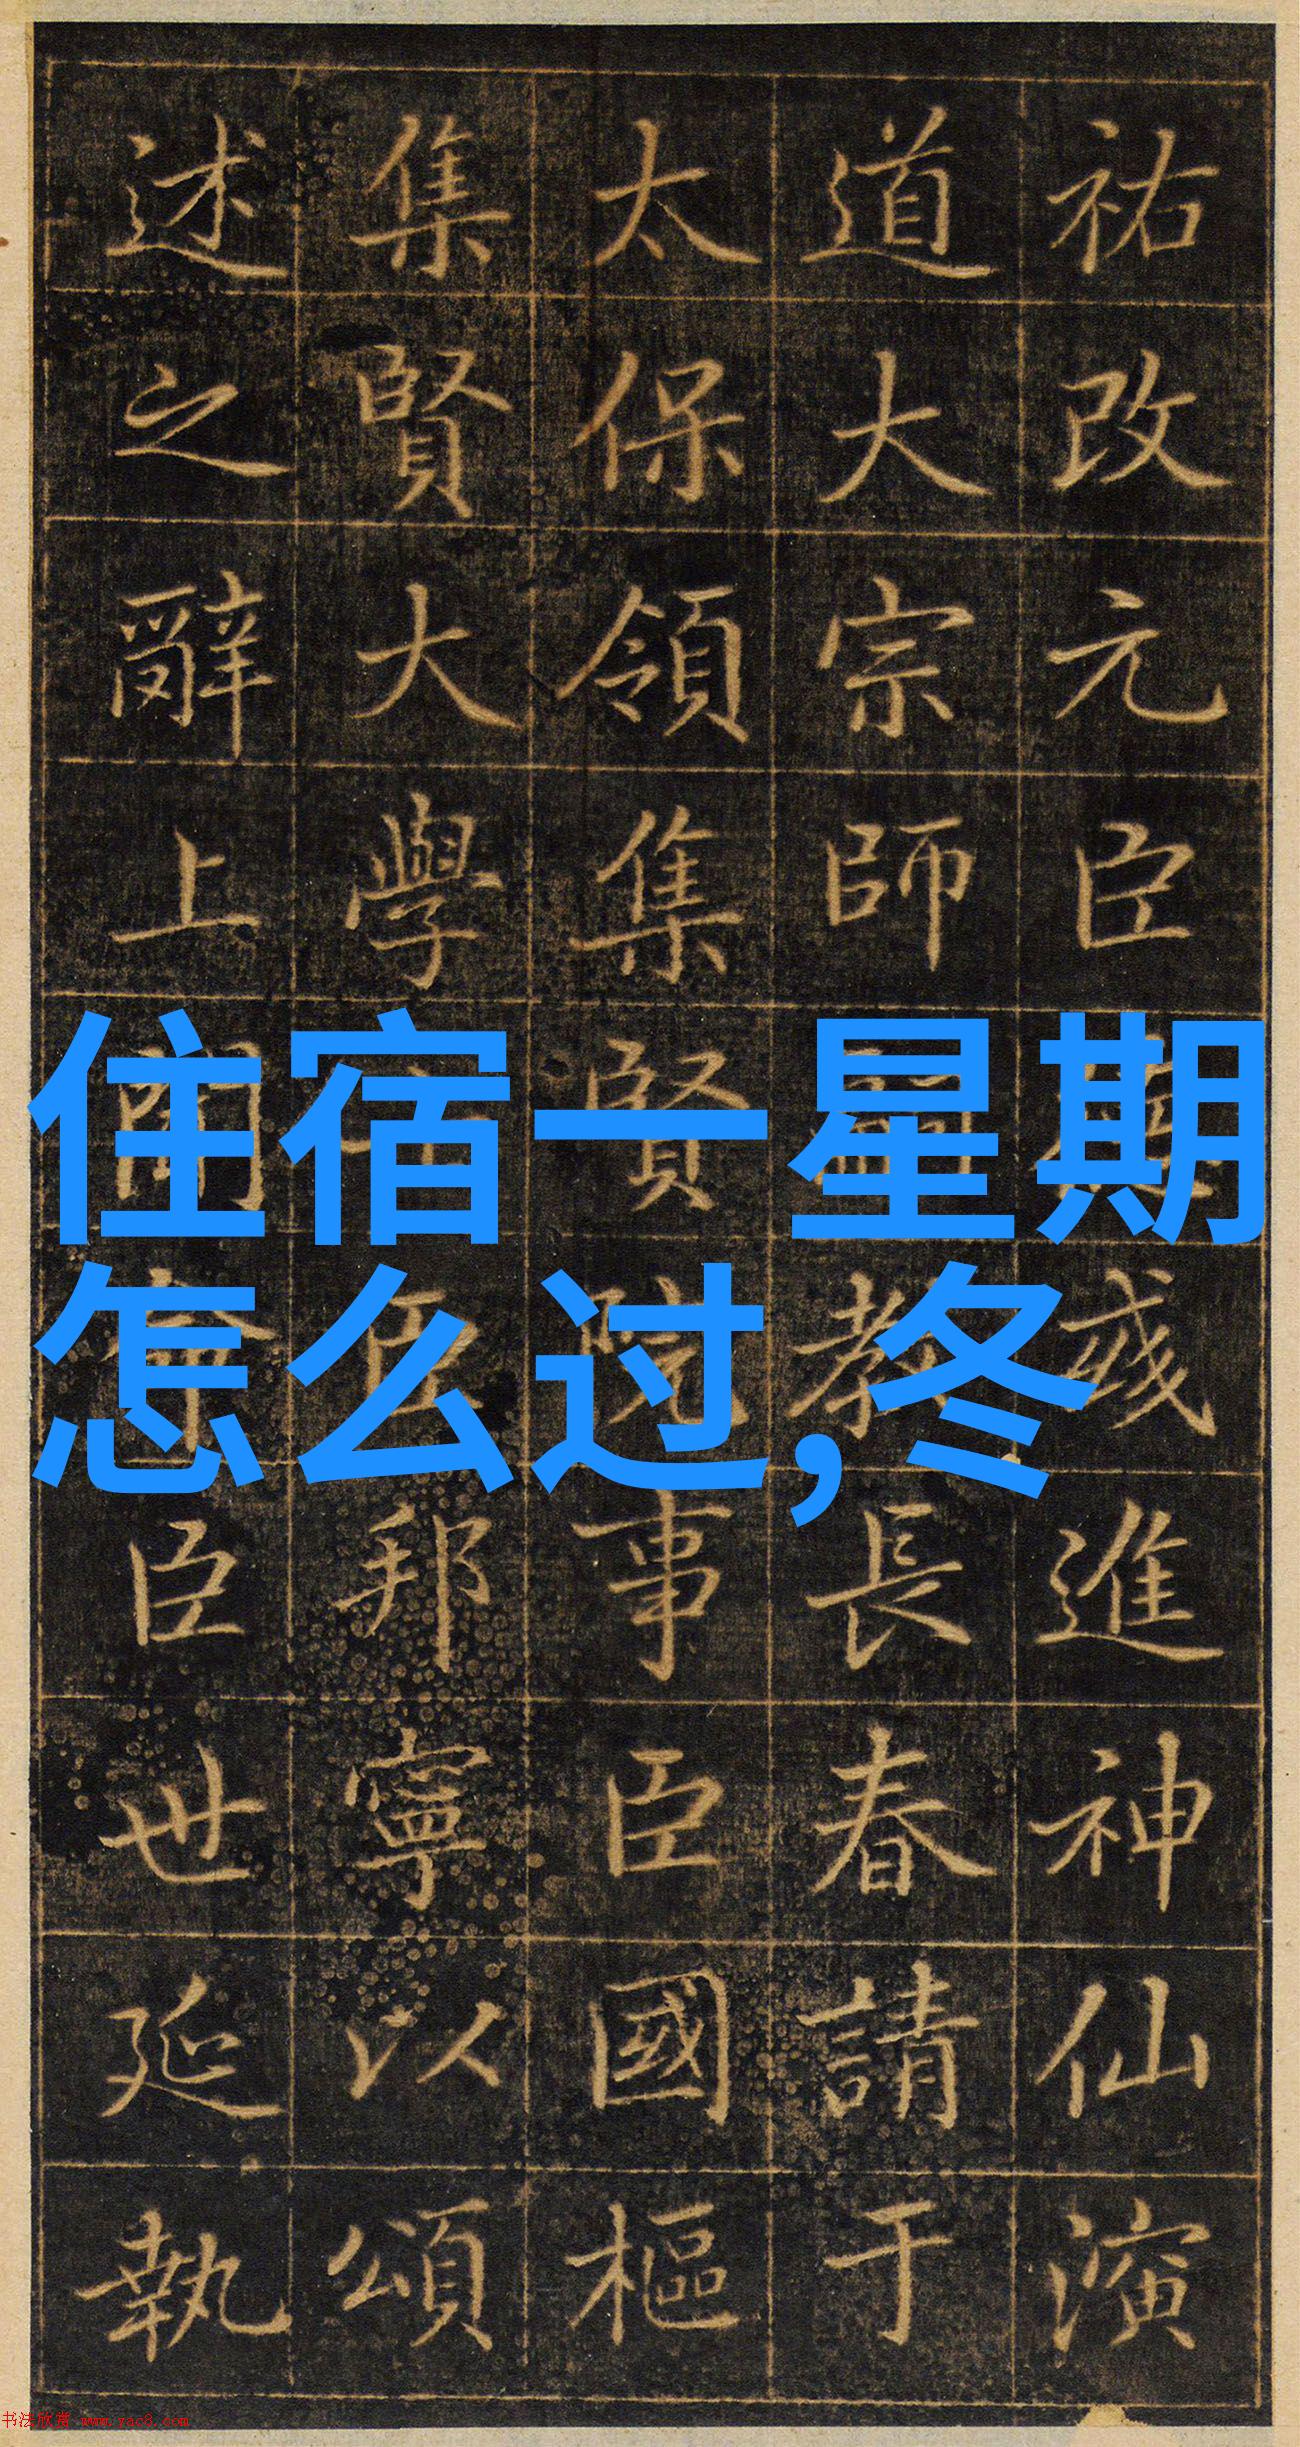 祐改元臣或進神仙演
道大宗師教長春請于
太保領集賢院事臣國樞
集賢大學士臣邦寧以頌
述之辭上聞臣世延執
住宿一星期
怎么过,冬
书法欣赏 www.yac8.com